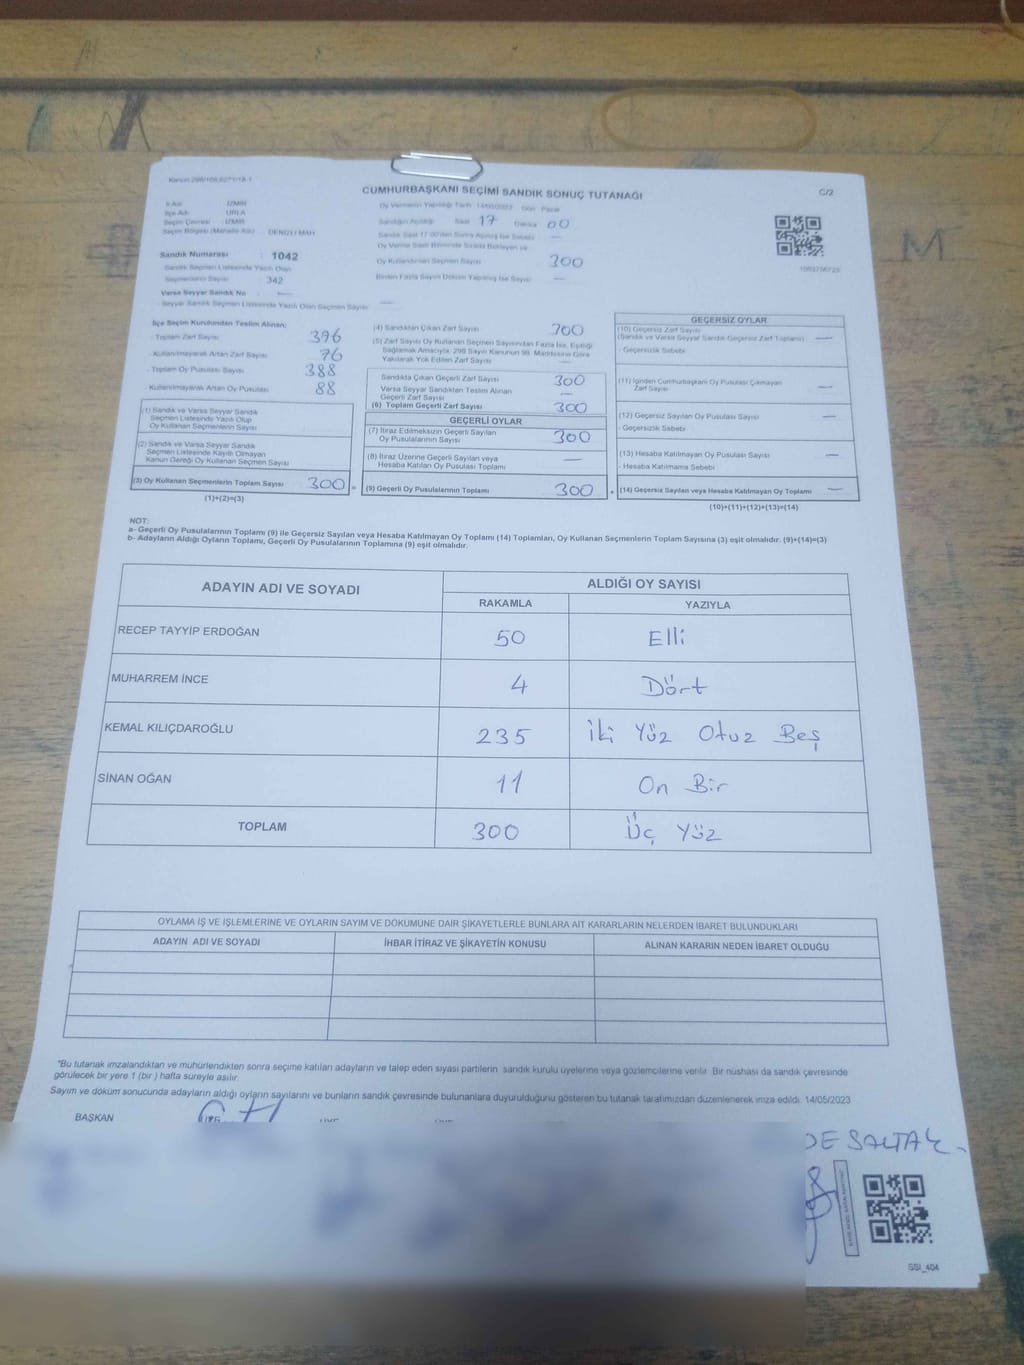 Kanun 298/105,6271/18-1
CUMHURBAŞKANI SEÇİMİ SANDIK SONUÇ TUTANAĞI
C/2
İl Adı İZMİR
İlçe Adı URLA
Seçim Çevresi İZMİR
Seçim Bölgesi (Mahalle Adı) DENİZLİ MAH.
Oy Vermenin Yapıldığı Tarih 14/05/2023 Gün Pazar
Sandığın Açıldığı Saat 17 Dakika 00
Sandık Saat 17:00'den Sonra Açılmış İse Sebebi —
Oy Verme Saati Bitiminde Sırada Bekleyen ve
Oy Kullandırılan Seçmen Sayısı 300
Birden Fazla Sayım Döküm Yapılmış İse Sayısı —
Sandık Numarası : 1042
Sandık Seçmen Listesinde Yazılı Olan
Seçmenlerin Sayısı 342
Varsa Seyyar Sandık No —
- Seyyar Sandık Seçmen Listesinde Yazılı Olan Seçmen Sayısı —
İlçe Seçim Kurulundan Teslim Alınan;
- Toplam Zarf Sayısı 396
- Kullanılmayarak Artan Zarf Sayısı 76
- Toplam Oy Pusulası Sayısı 388
- Kullanılmayarak Artan Oy Pusulası 88
(1) Sandık ve Varsa Seyyar Sandık
Seçmen Listesinde Yazılı Olup
Oy Kullanan Seçmenlerin Sayısı
(2) Sandık ve Varsa Seyyar Sandık
Seçmen Listesinde Kayıtlı Olmayan
Kanun Gereği Oy Kullanan Seçmen Sayısı
(3) Oy Kullanan Seçmenlerin Toplam Sayısı 300 =
(1)+(2)=(3)
(4) Sandıktan Çıkan Zarf Sayısı 300
(5) Zarf Sayısı Oy Kullanan Seçmen Sayısından Fazla İse, Eşitliği
Sağlamak Amacıyla, 298 Sayılı Kanunun 98. Maddesine Göre
Yakılarak Yok Edilen Zarf Sayısı —
Sandıkta Çıkan Geçerli Zarf Sayısı 300
Varsa Seyyar Sandıktan Teslim Alınan
Geçerli Zarf Sayısı —
(6) Toplam Geçerli Zarf Sayısı 300
GEÇERLİ OYLAR
(7) İtiraz Edilmeksizin Geçerli Sayılan
Oy Pusulalarının Sayısı 300
(8) İtiraz Üzerine Geçerli Sayılan veya
Hesaba Katılan Oy Pusulası Toplamı —
(9) Geçerli Oy Pusulalarının Toplamı 300 +
GEÇERSİZ OYLAR
(10) Geçersiz Zarf Sayısı
(Sandık ve Varsa Seyyar Sandık Geçersiz Zarf Toplamı) —
- Geçersizlik Sebebi
(11) İçinden Cumhurbaşkanı Oy Pusulası Çıkmayan
Zarf Sayısı —
(12) Geçersiz Sayılan Oy Pusulası Sayısı —
- Geçersizlik Sebebi
(13) Hesaba Katılmayan Oy Pusulası Sayısı —
- Hesaba Katılmama Sebebi
(14) Geçersiz Sayılan veya Hesaba Katılmayan Oy Toplamı —
(10)+(11)+(12)+(13)=(14)
NOT:
a- Geçerli Oy Pusulalarının Toplamı (9) ile Geçersiz Sayılan veya Hesaba Katılmayan Oy Toplamı (14) Toplamları, Oy Kullanan Seçmenlerin Toplam Sayısına (3) eşit olmalıdır. (9)+(14)=(3)
b- Adayların Aldığı Oyların Toplamı, Geçerli Oy Pusulalarının Toplamına (9) eşit olmalıdır.
ADAYIN ADI VE SOYADI ALDIĞI OY SAYISI
RAKAMLA YAZIYLA
RECEP TAYYİP ERDOĞAN 50 Elli
MUHARREM İNCE 4 Dört
KEMAL KILIÇDAROĞLU 235 İki Yüz Otuz Beş
SİNAN OĞAN 11 On Bir
TOPLAM 300 Üç Yüz
OYLAMA İŞ VE İŞLEMLERİNE VE OYLARIN SAYIM VE DÖKÜMÜNE DAİR ŞİKAYETLERLE BUNLARA AİT KARARLARIN NELERDEN İBARET BULUNDUKLARI
ADAYIN ADI VE SOYADI İHBAR İTİRAZ VE ŞİKAYETİN KONUSU ALINAN KARARIN NEDEN İBARET OLDUĞU
*Bu tutanak imzalandıktan ve mühürlendikten sonra seçime katılan adayların ve talep eden siyasi partilerin sandık kurulu üyelerine veya gözlemcilerine verilir. Bir nüshası da sandık çevresinde
görülecek bir yere 1 (bir) hafta süreyle asılır.
Sayım ve döküm sonucunda adayların aldığı oyların sayılarını ve bunların sandık çevresinde bulunanlara duyurulduğunu gösteren bu tutanak tarafımızdan düzenlenerek imza edildi. 14/05/2023
BAŞKAN
SSI_404